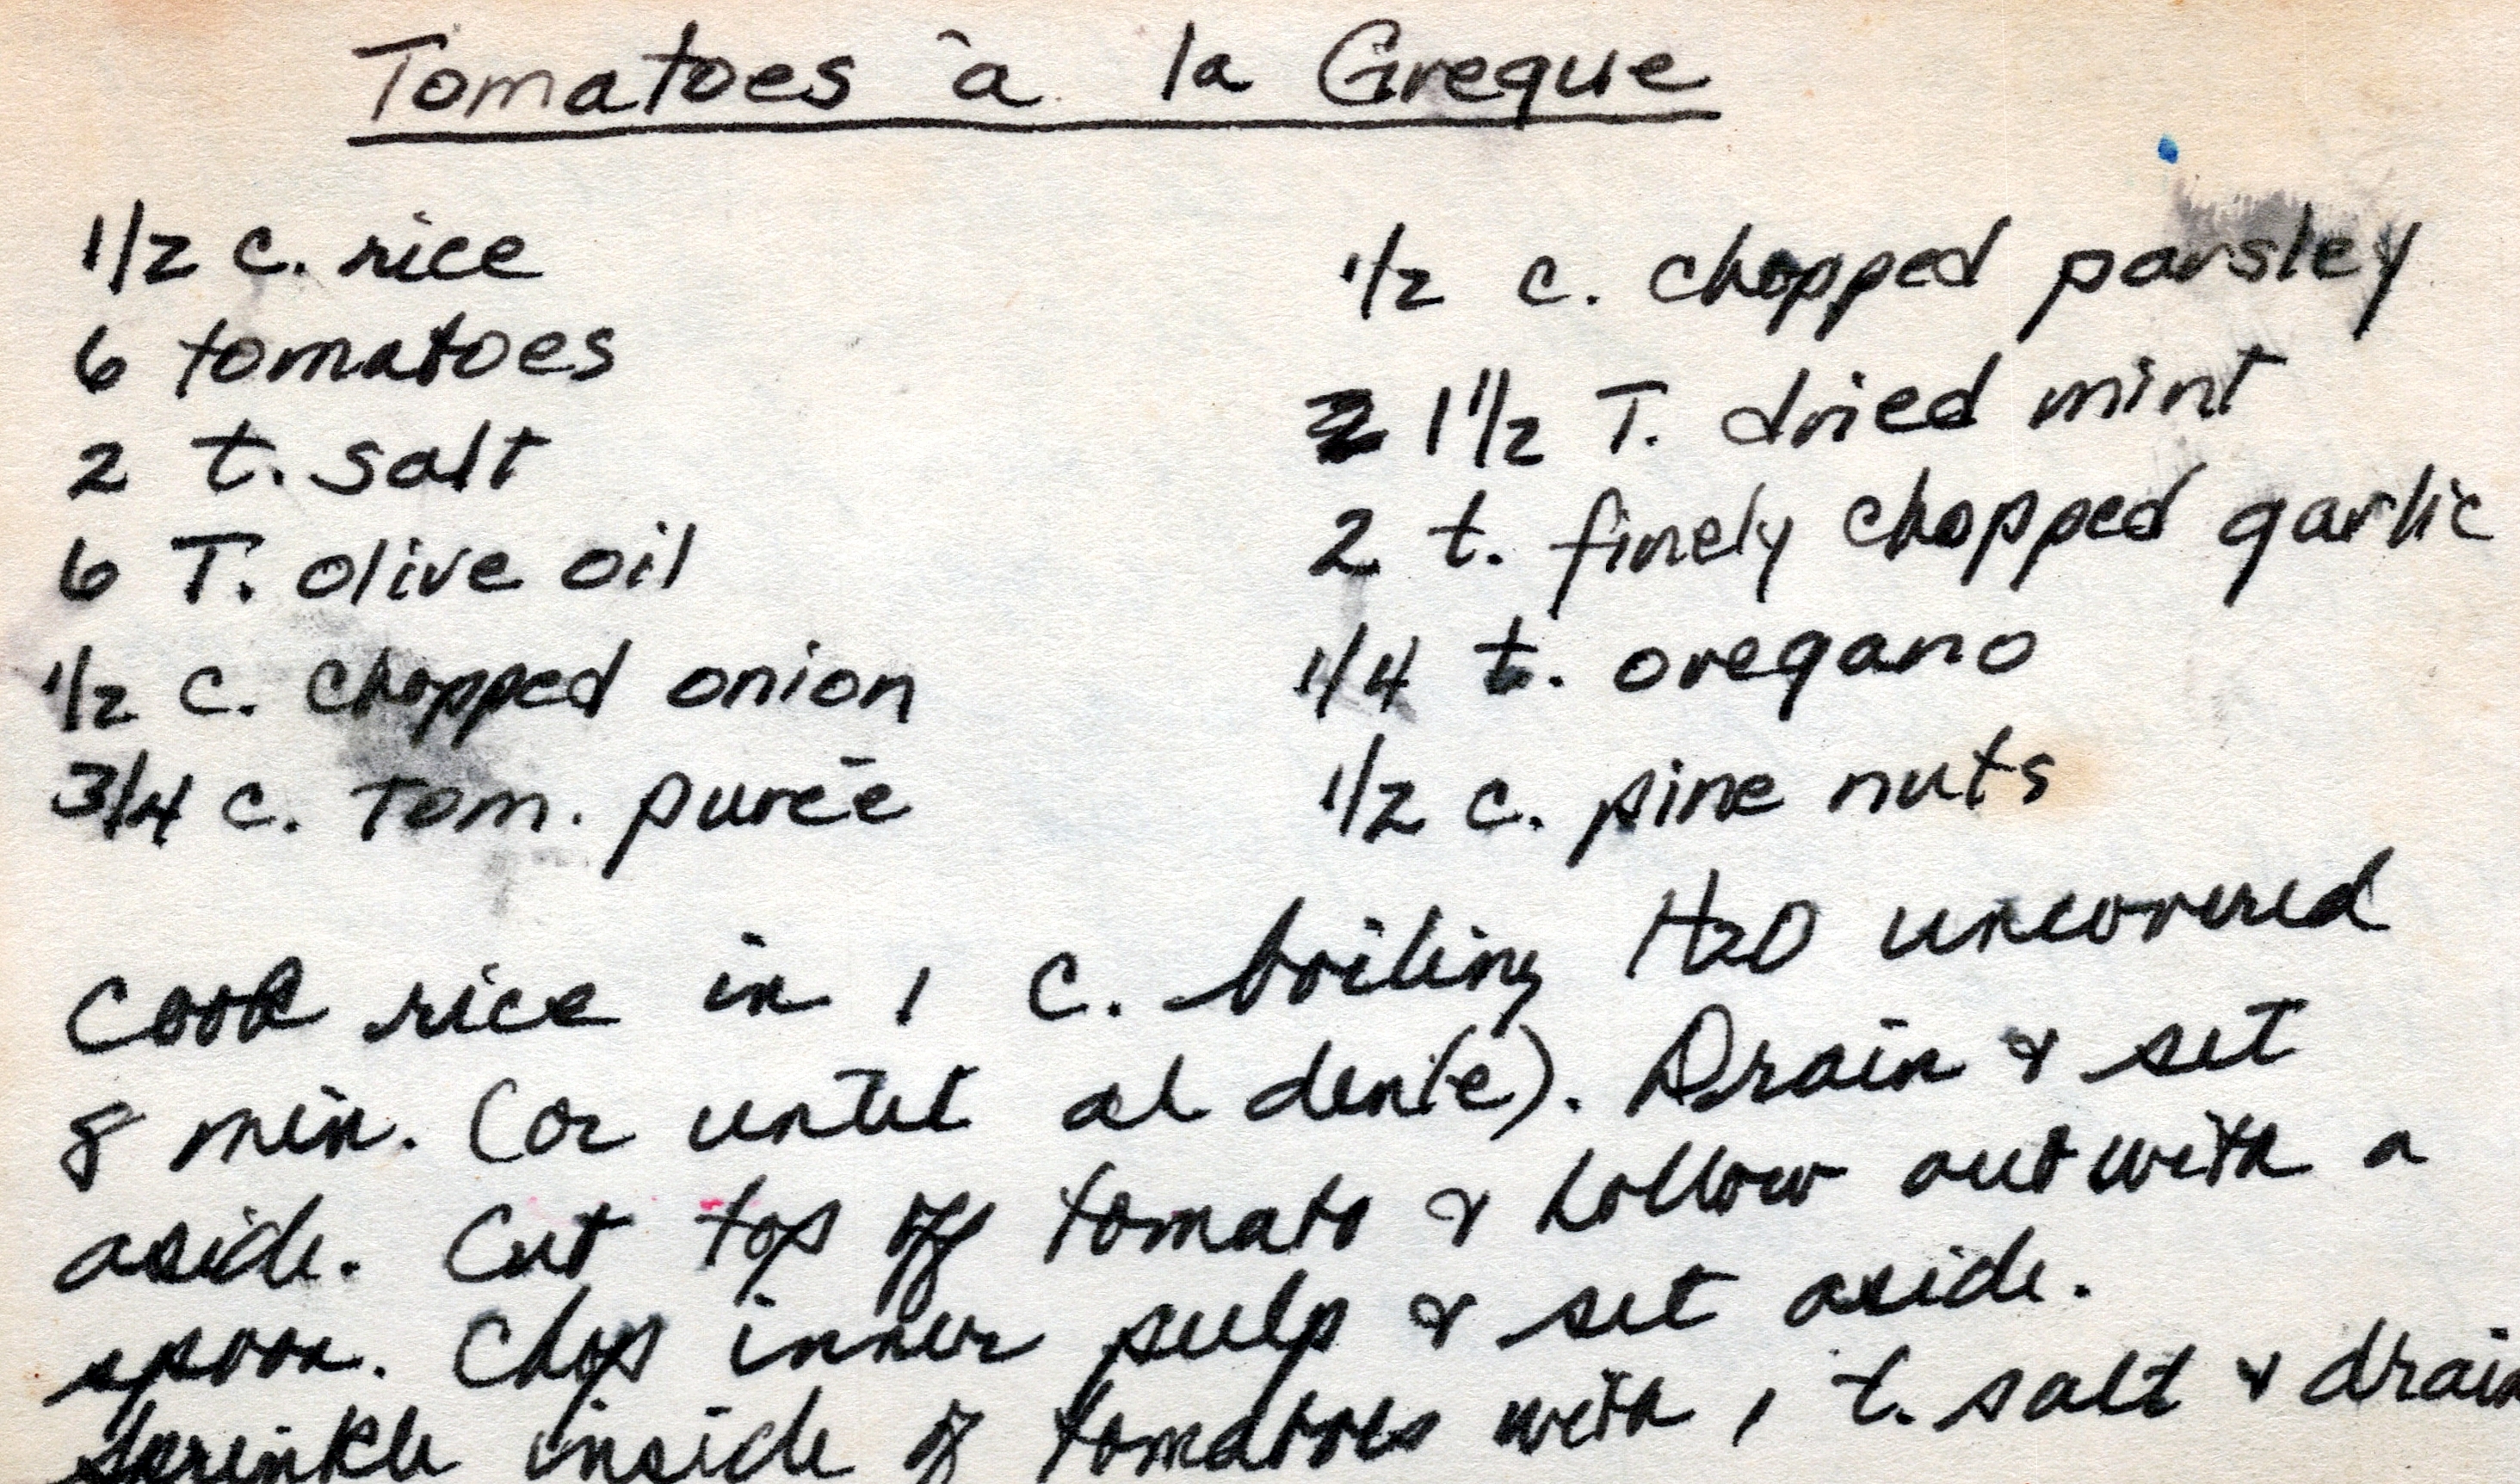 Tomatoes à la Greque
1/2 c. rice
6 tomatoes
2 t. salt
6 T. olive oil
1/2 c. chopped onion
3/4 c. Tom. purée
1/2 c. chopped parsley
1 1/2 T. dried mint
2 t. finely chopped garlic
1/4 t. oregano
1/2 c. pine nuts
Cook rice in 1 c. boiling H2O uncovered
8 min. (or until al dente). Drain & set
aside. Cut top off tomato & hollow out with a
spoon. Chop inner pulp & set aside.
Sprinkle inside of tomatoes with 1 t. salt & drain